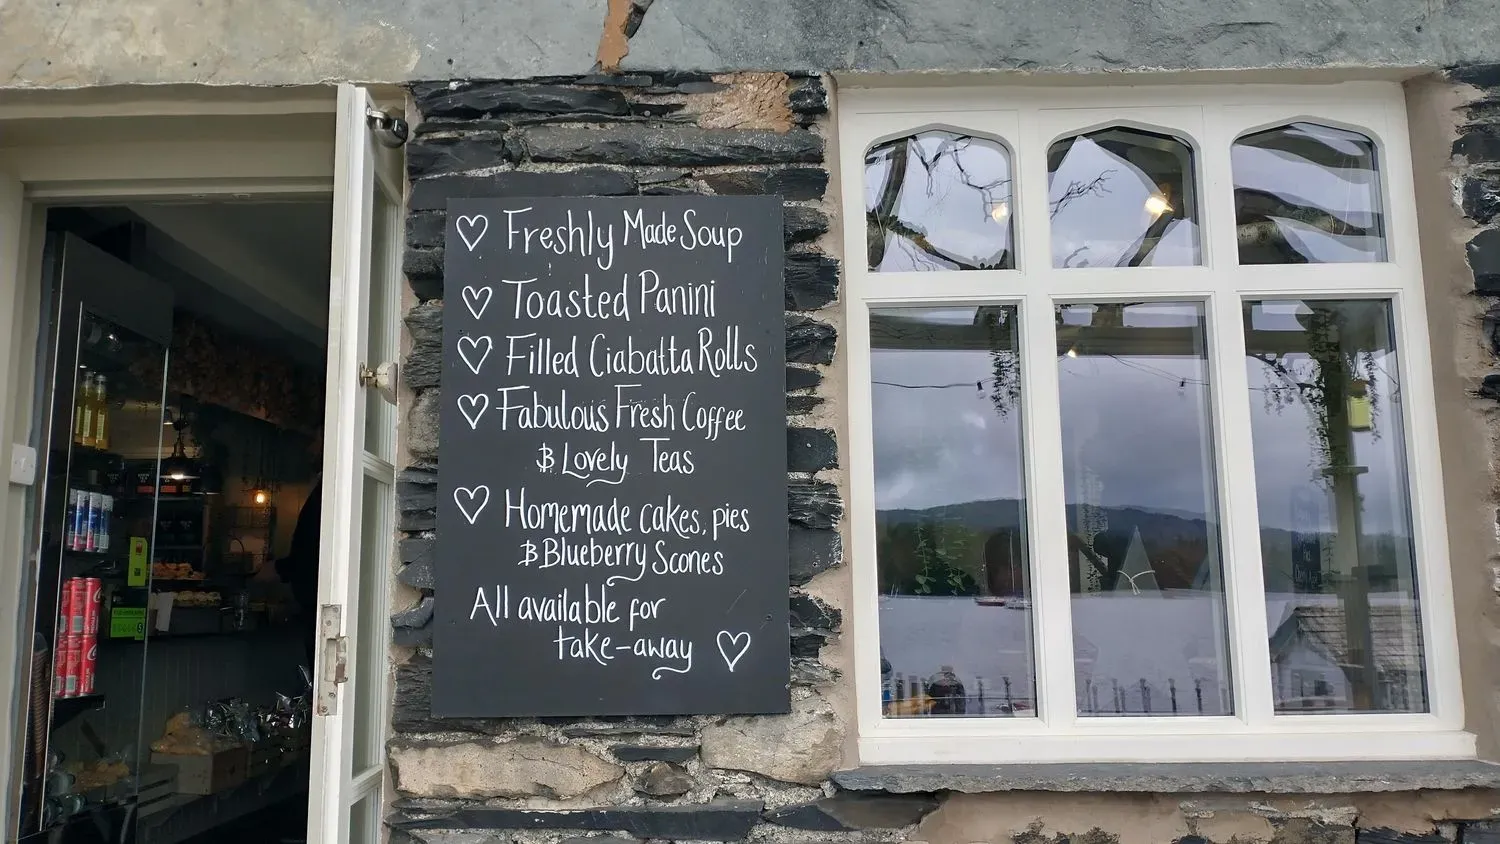 Freshly Made Soup
Toasted Panini
Filled Ciabatta Rolls
Fabulous Fresh Coffee
& Lovely Teas
Homemade cakes, pies
& Blueberry Scones
All available for
take-away